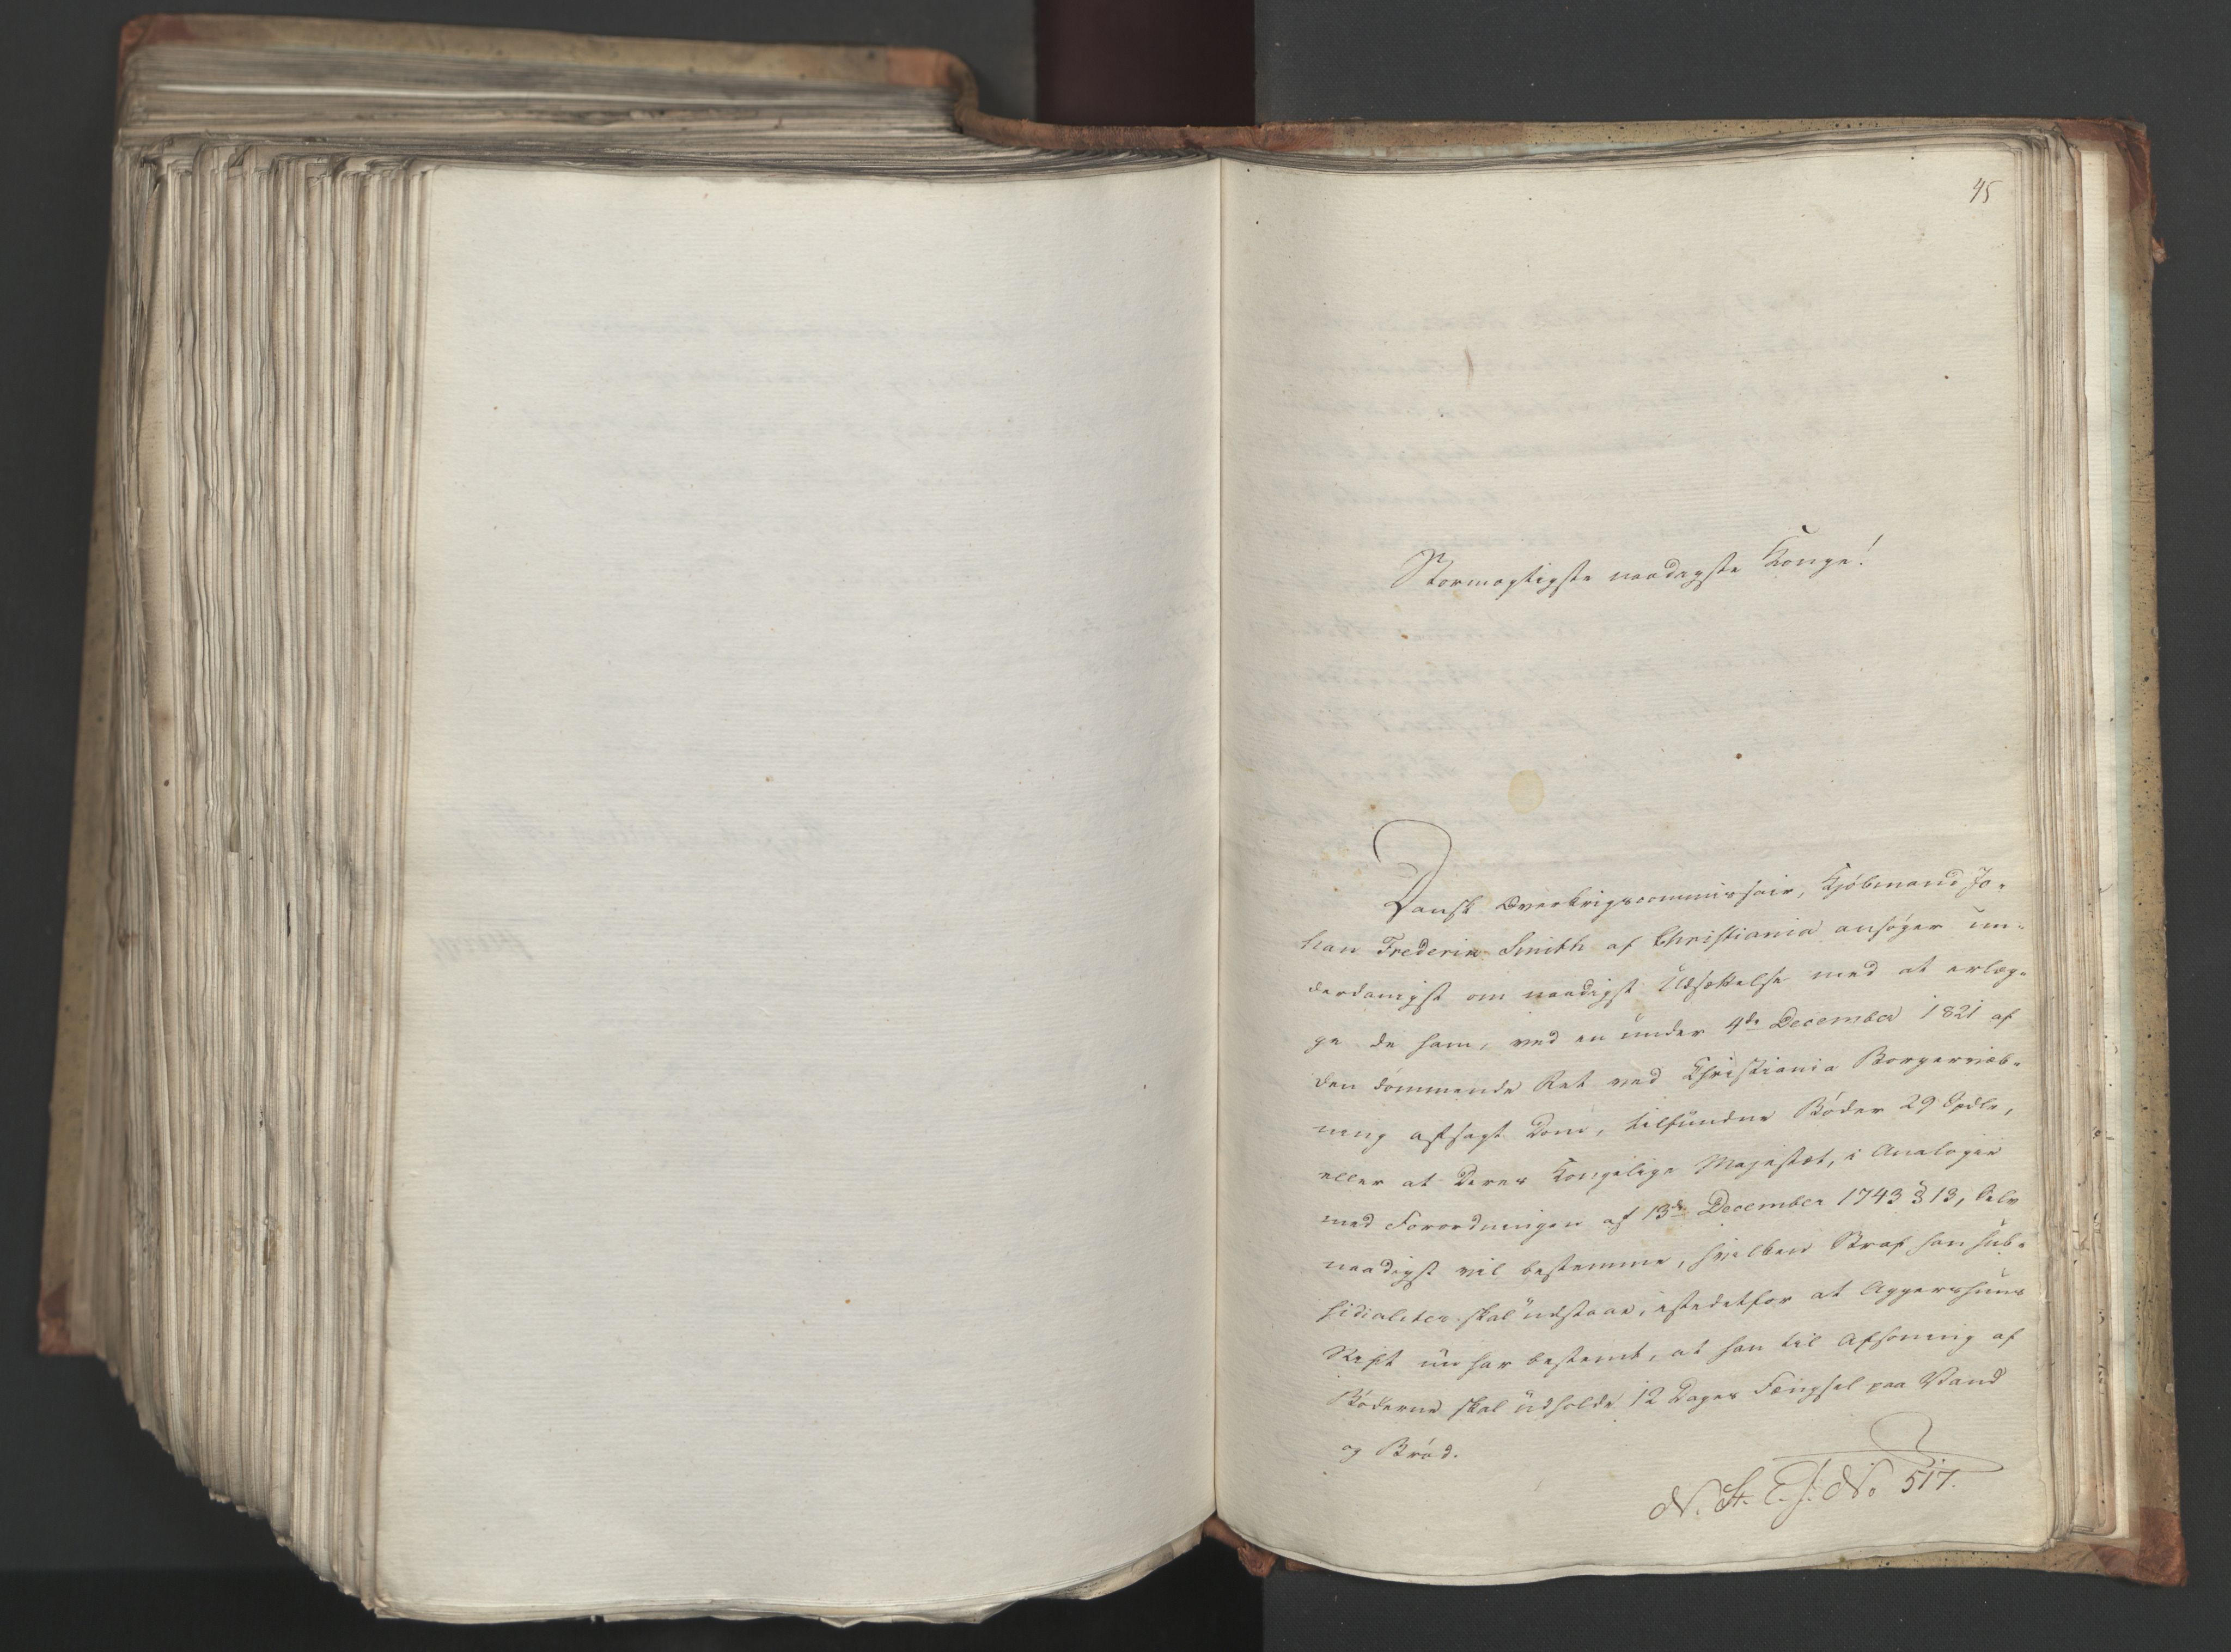 45
Stormægtigste naadigste Konge!
Dansk Overkrigscommissair, Kjöbmand Jo-
han Frederik Smith af Christiania ansöger un-
derdanigst om naadigst Udsættelse med at erlæg-
ge de ham, ved en under 4de December 1821 af
den dömmende Ret ved Christiania Borgervæb-
ning afsagt Dom, tilfundne Böder 29 Spdlr,
eller at Deres Kongelige Majestæt, i Analogie
med Forordningen af 13de December 1743 § 13, Selv
naadigst vil bestemme, hvilken Straf han sub-
sidialiter skal udstaae, istedetfor at Aggershuus
Stift nu har bestemt, at han til Afsoning af
Böderne skal udholde 12 Dages Fængsel paa Vand
og Bröd.
N. St. E. J. No 517.